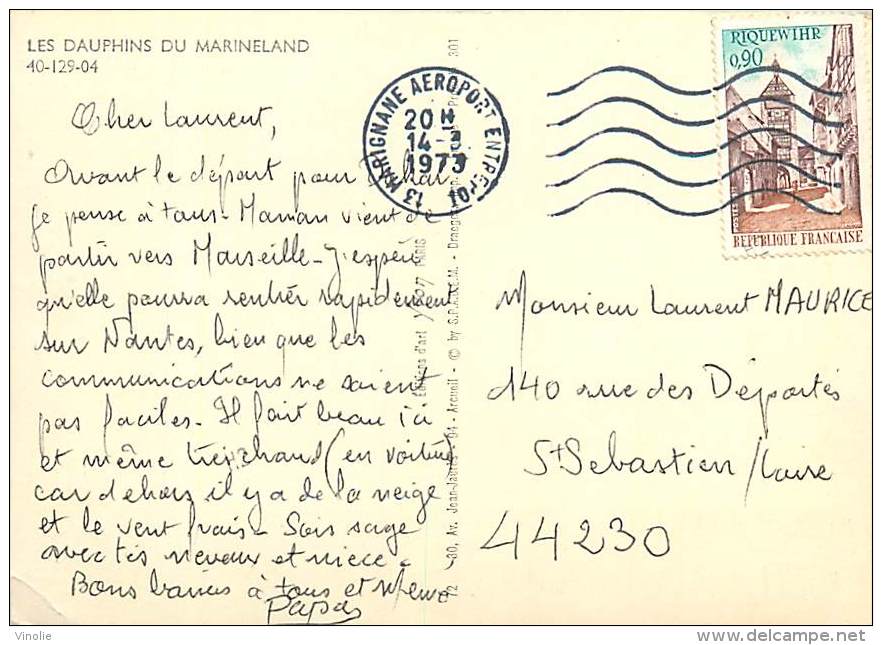 LES DAUPHINS DU MARINELAND
40-129-04
Cher Laurent,
Avant le départ pour
je pense à tous. Maman vient de
partir vers Marseille. J'espère
qu'elle pourra rentrer rapidement
sur Nantes, bien que les
communications ne soient
pas faciles. Il fait beau ici
et même très chaud (en voiture)
car dehors il y a de la neige
et le vent frais. Sois sage
avec tes neveux et nièce.
Bons baisers à tous et
Papa
Editions d'art yvon PARIS
301
72 -30, Av. Jean-Jaurès - 94 - Arcueil - © by S.P.A.D.E.M. - Draeger
13 MARIGNANE AEROPORT ENTREPOT
20 H
14-3
1973
RIQUEWIHR
0,90
POSTES
REPUBLIQUE FRANCAISE
Monsieur Laurent MAURICE
140 rue des Déportés
St Sebastien/Loire
44230
Vinolie
delcampe.net